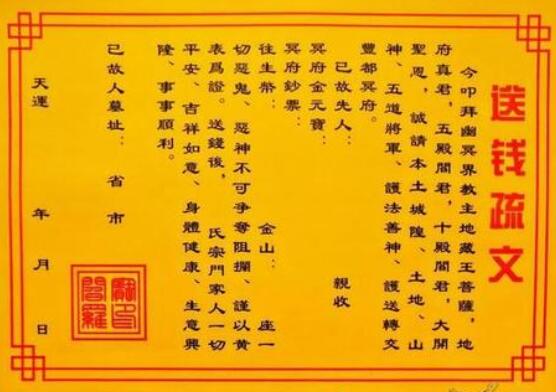 送钱疏文
今叩拜幽冥界教主地藏王菩薩，地
府真君，五殿閻君，十殿閻君，大開
聖恩，誠請本土城隍、土地、山
神、五道將軍、護法善神、護送轉交
豐都冥府。
已故先人： 親收
冥府金元寶：
冥府鈔票：
往生幣： 金山： 座一
切惡鬼、惡神不可争奪阻攔，謹以黄
表爲證。送錢後， 氏宗門家人一切
平安、吉祥如意、身體健康、生意興
隆、事事順利。
已故人墓址： 省 市
天運 年 月 日